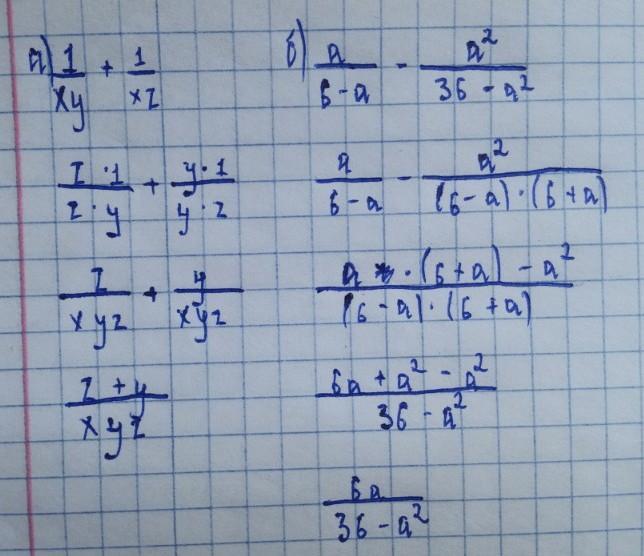 а) 1/xy + 1/xz
z·1/z·y + y·1/y·z
z/xyz + y/xyz
z+y/xyz
б) a/6-a - a²/36-a²
a/6-a - a²/(6-a)·(6+a)
a·(6+a)-a²/(6-a)·(6+a)
6a+a²-a²/36-a²
6a/36-a²